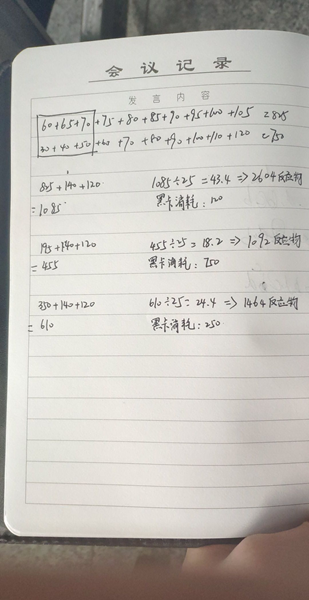 会议记录
发言内容
60+65+70+75+80+85+90+95+100+105 =825
30+40+50+60+70+80+90+100+110+120 =750
825+140+120 1085÷25=43.4 => 2604反应物
=1085 黑卡消耗: 120
195+140+120 455÷25=18.2 => 1092反应物
=455 黑卡消耗: 750
350+140+120 610÷25=24.4 => 1464反应物
=610 黑卡消耗: 250